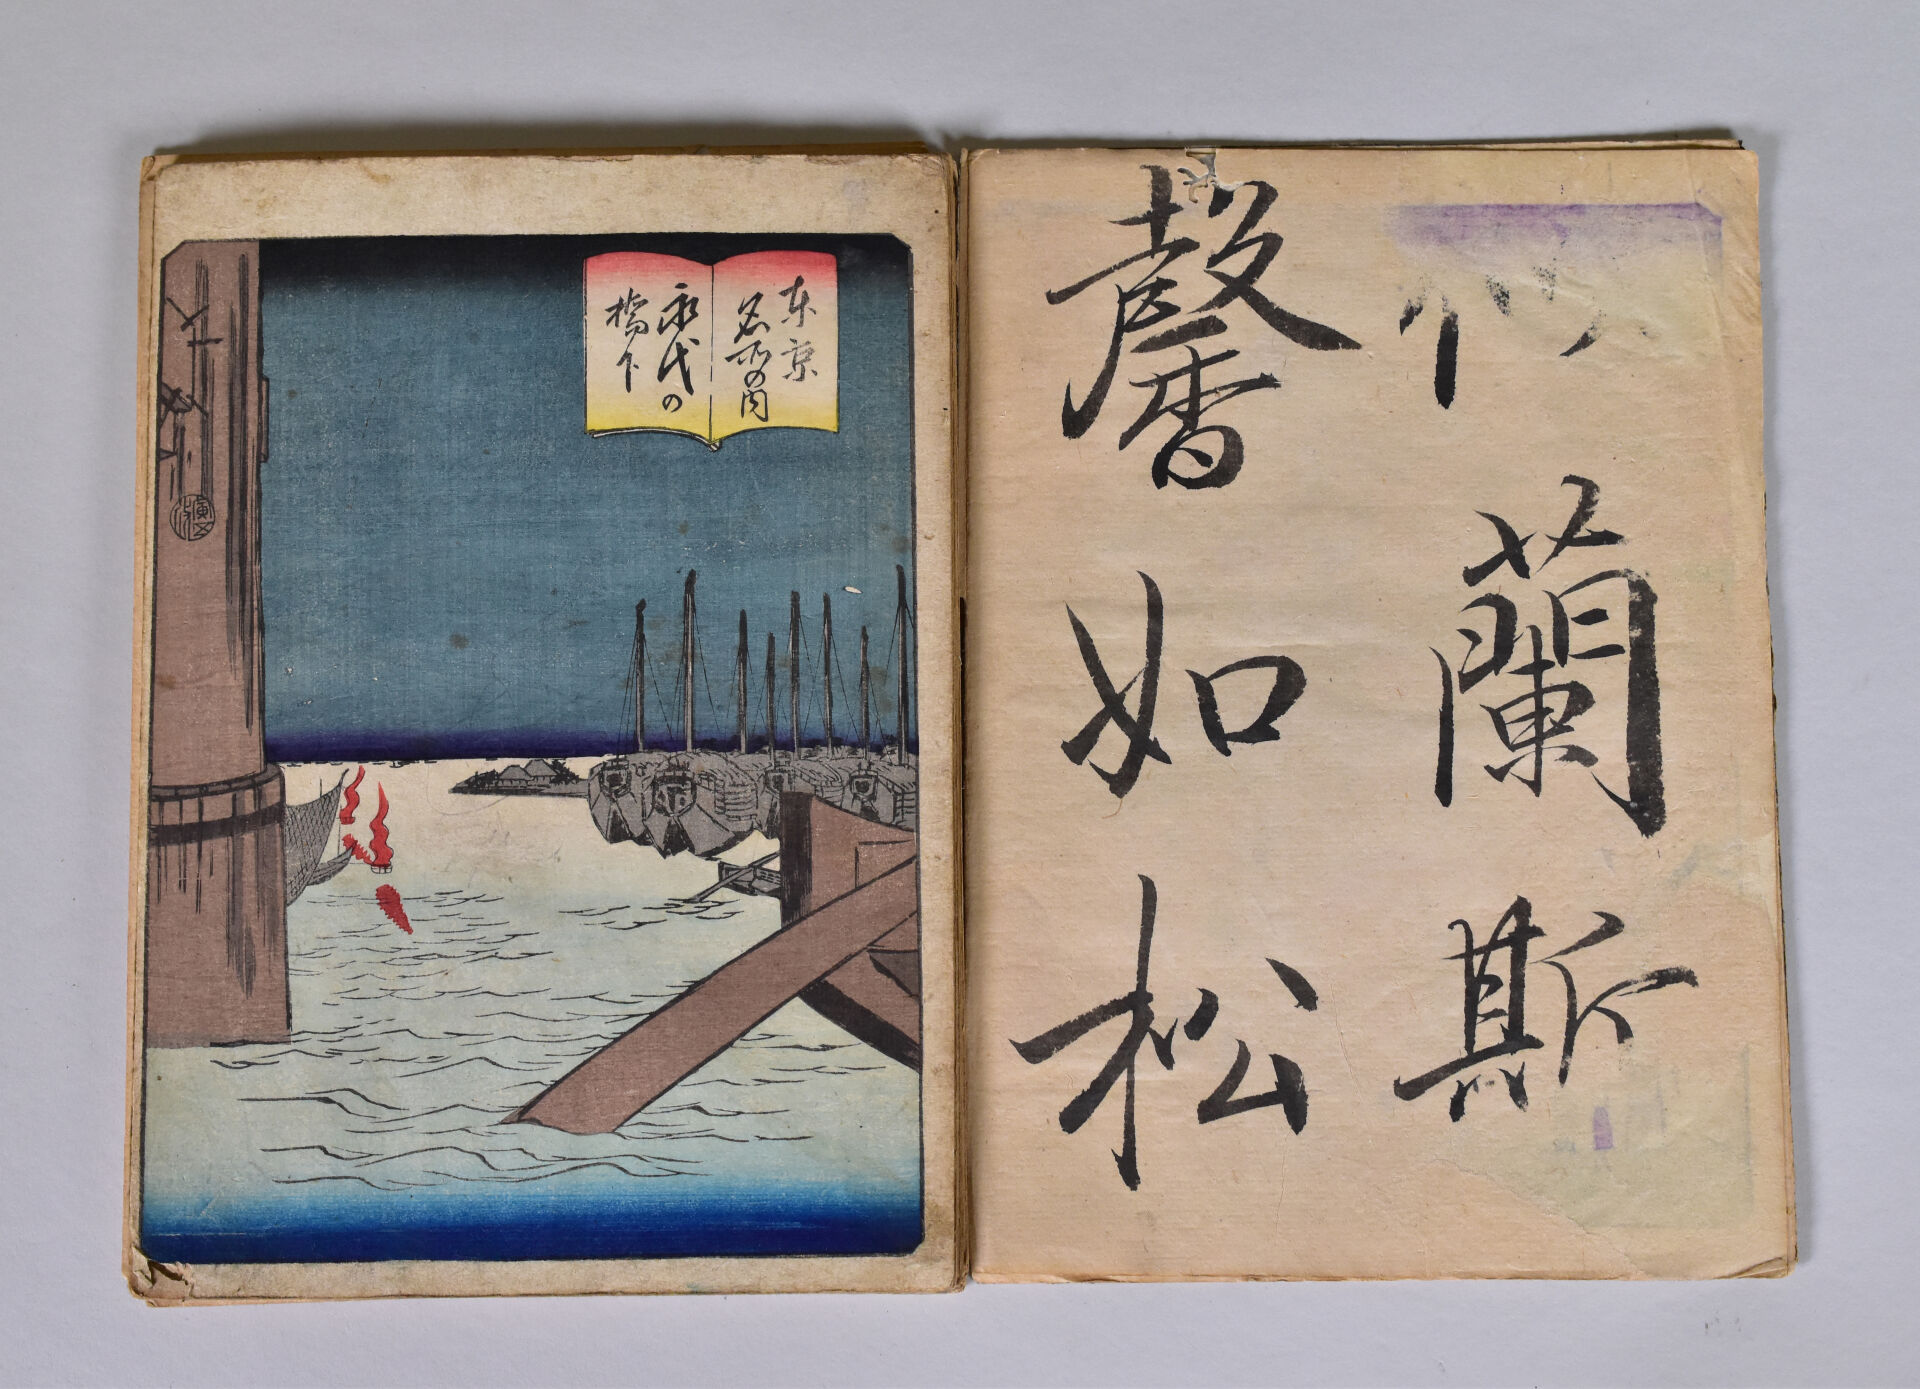 東京
名所の内
永代の
橋下
似
蘭
斯
馨
如
松